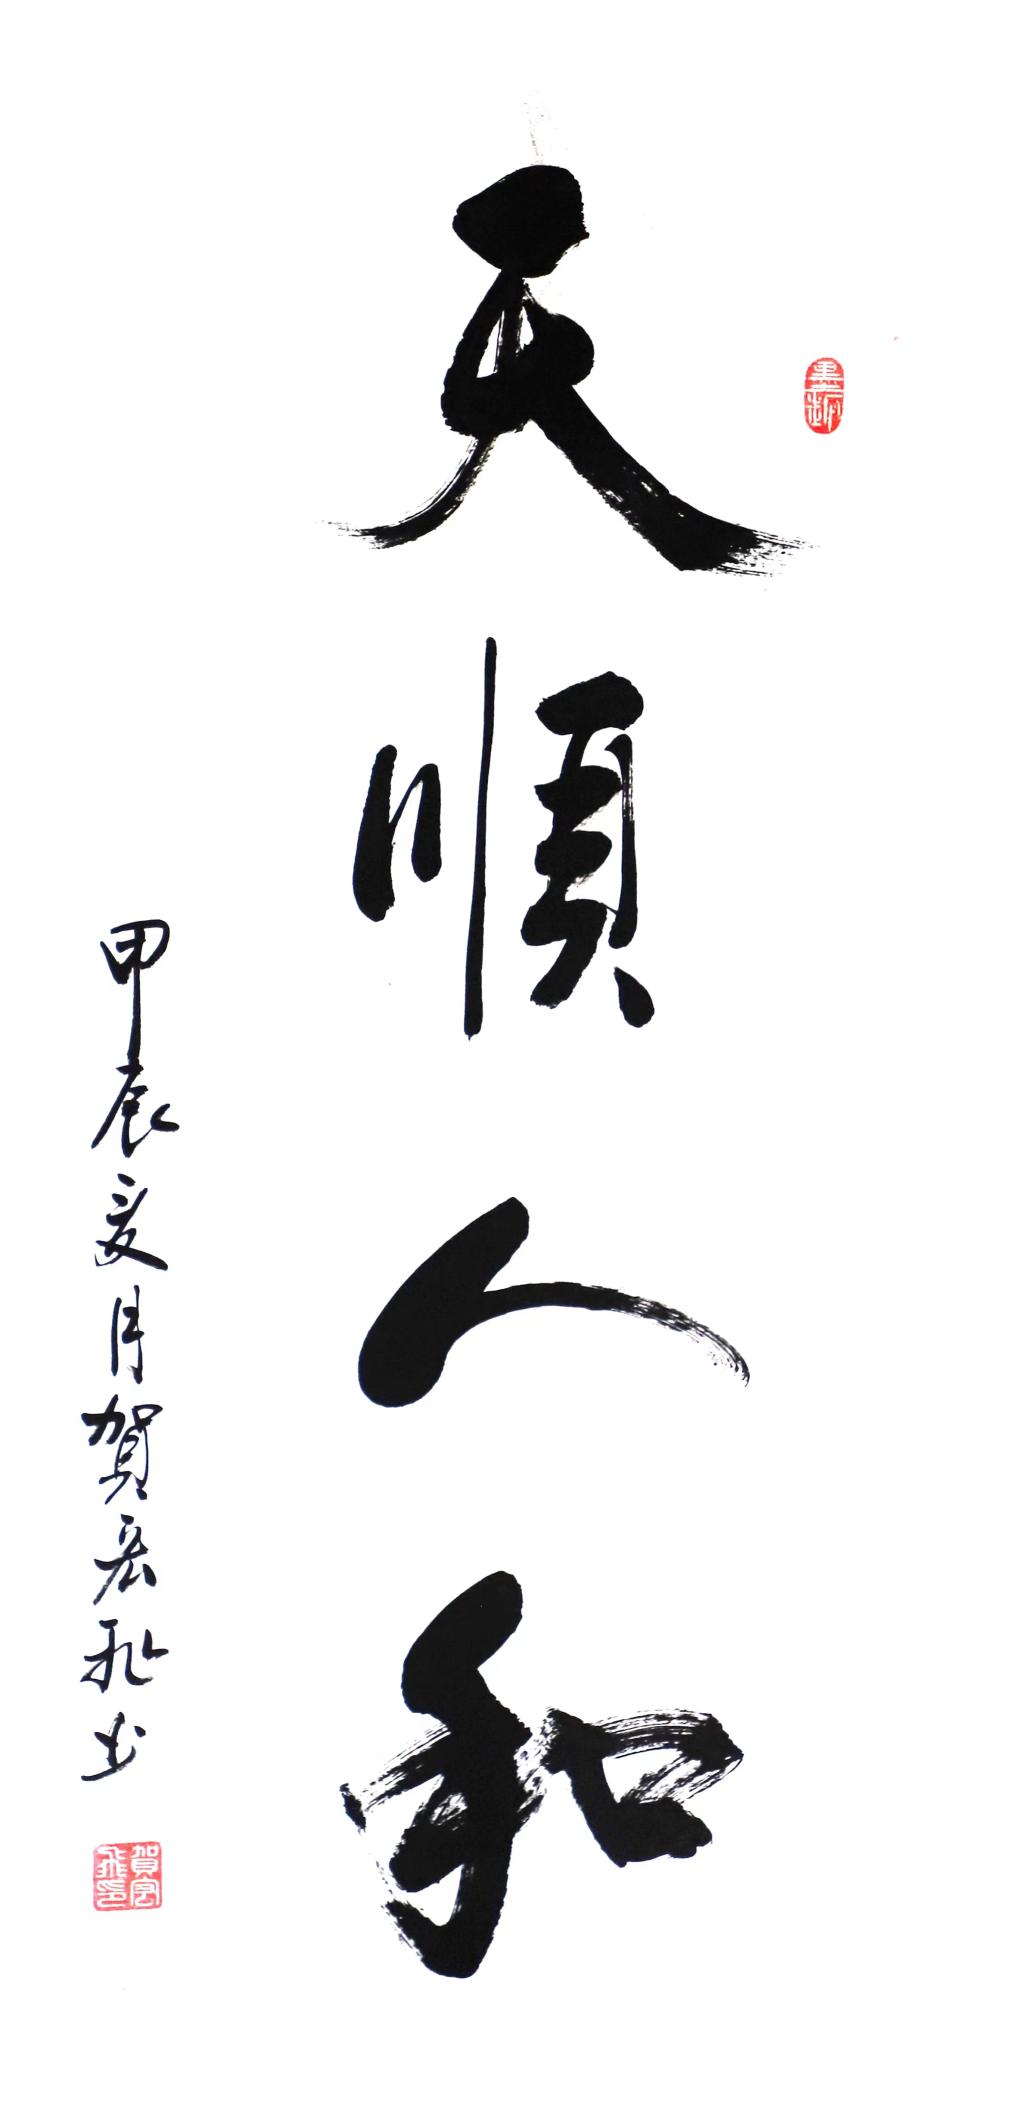 天順人和
甲辰夏月賀宏飛書
賀宏飛印